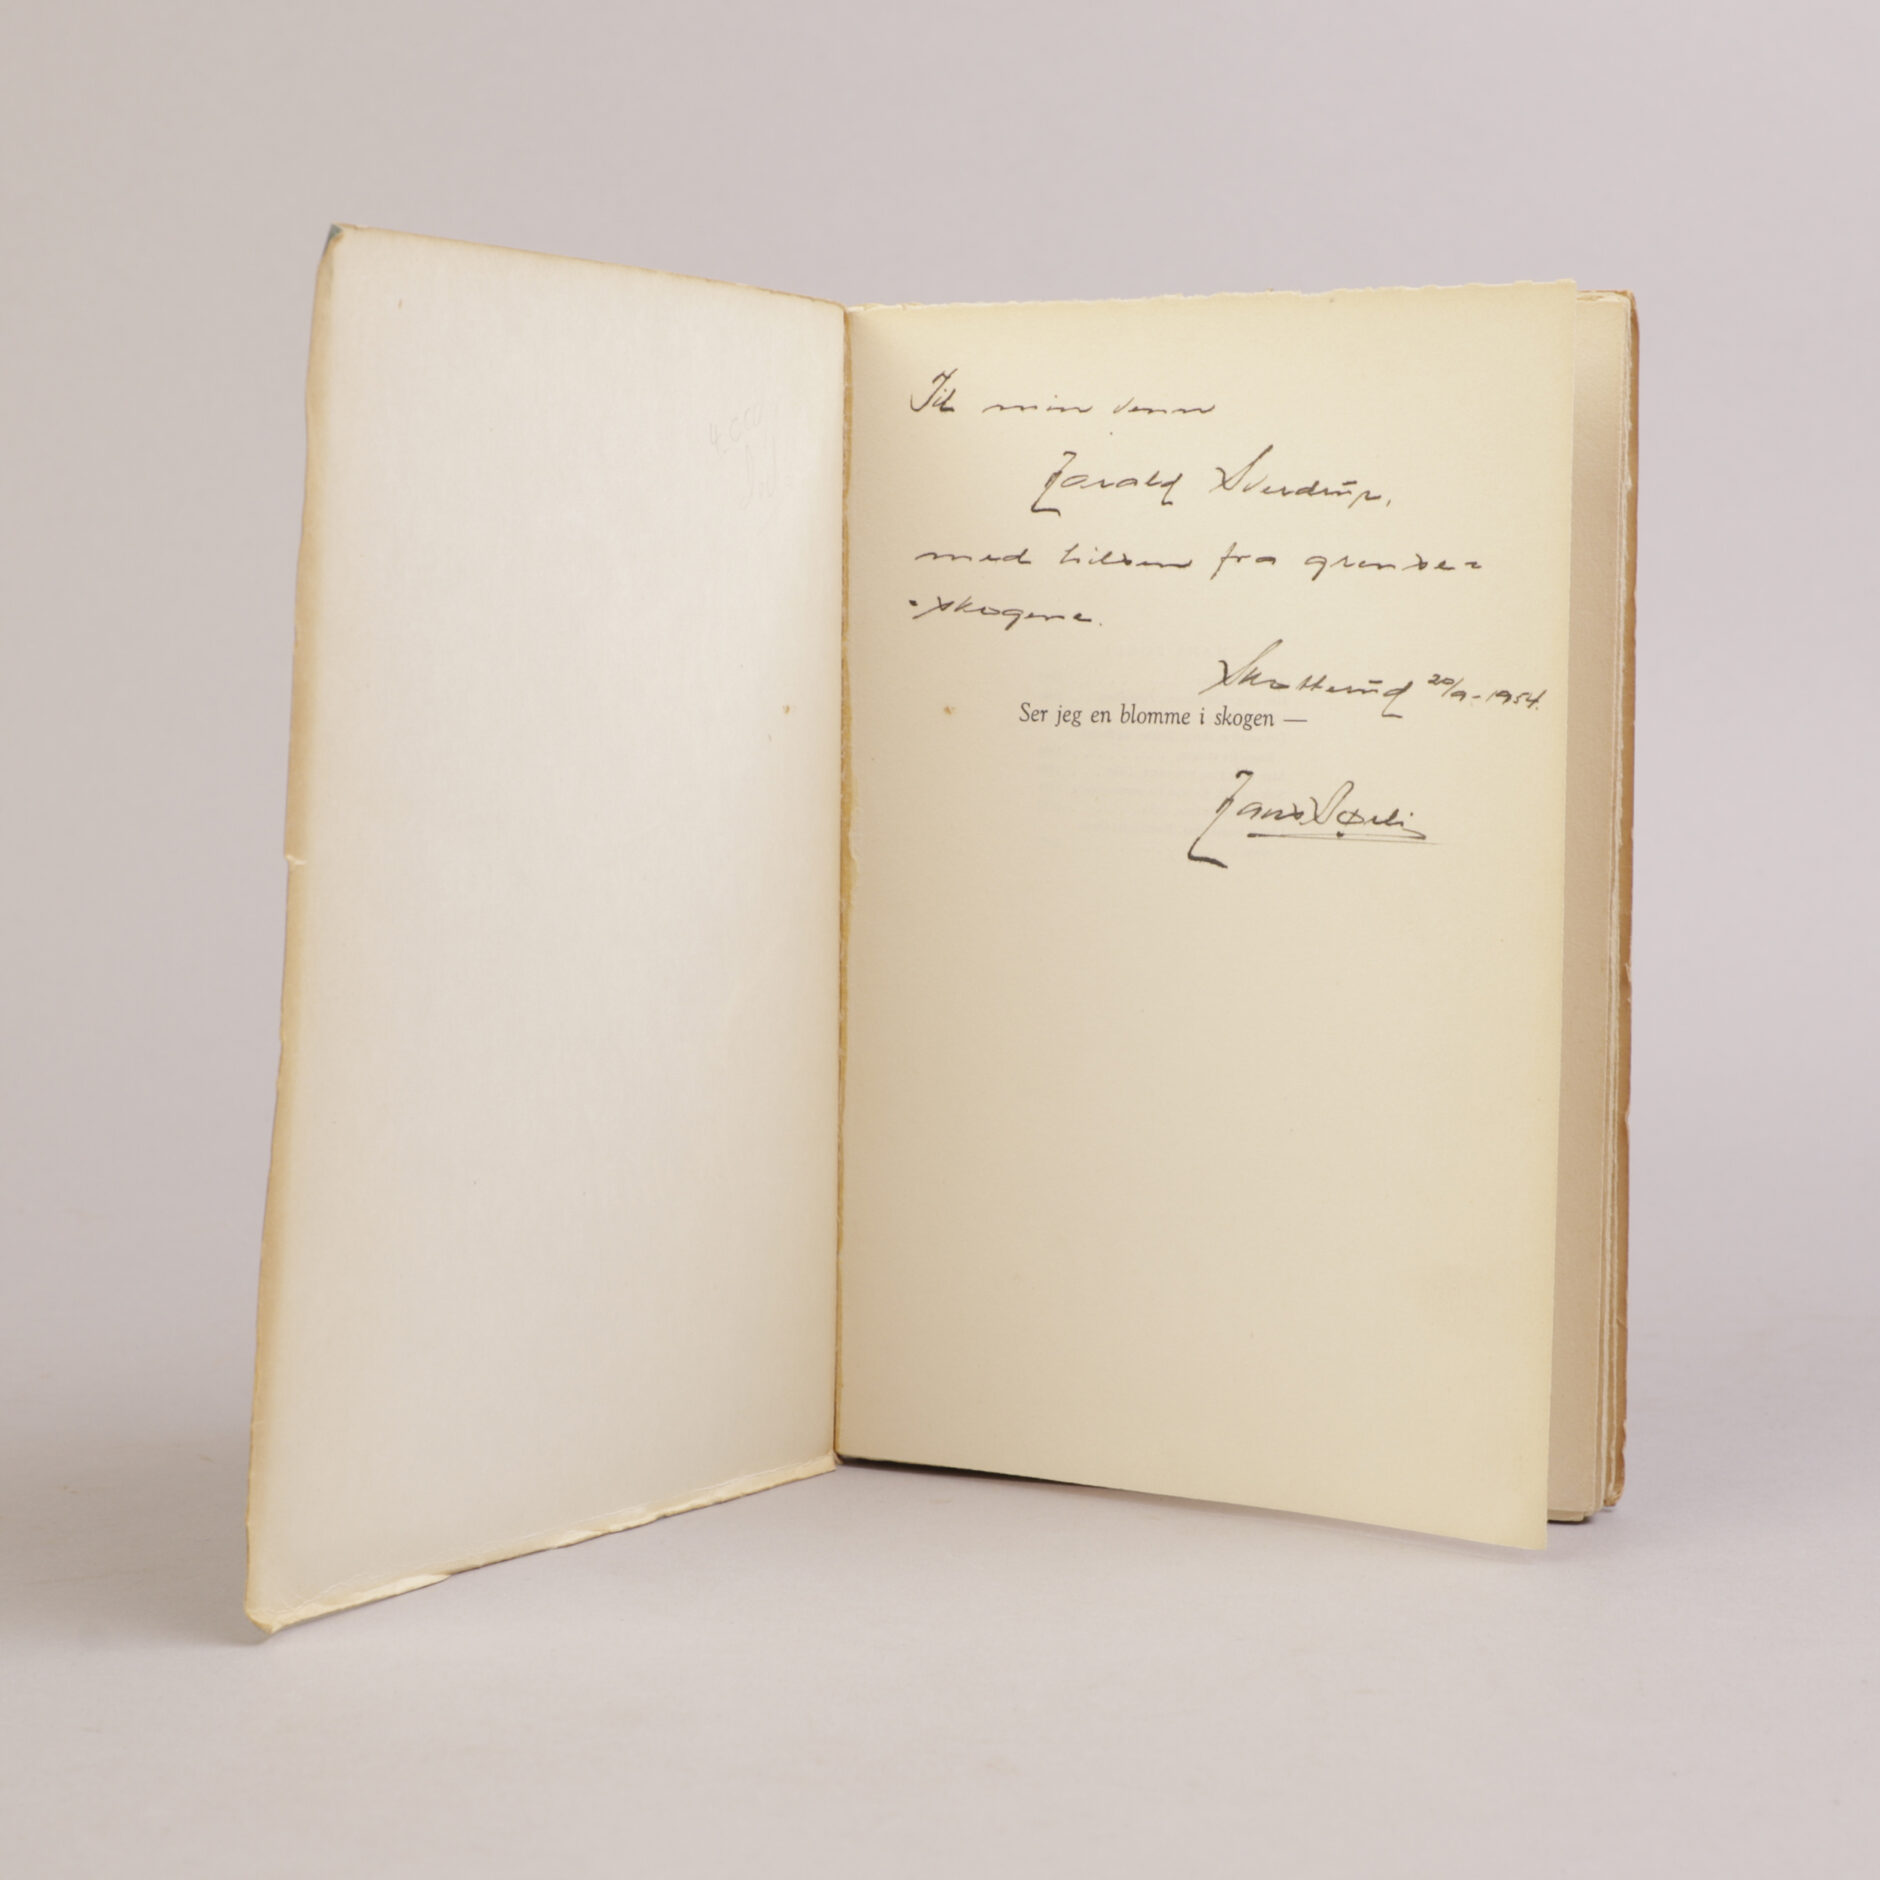 Til min venn
Harald Sverdrup,
med hilsen fra grense=
=skogene.
Skotterud 20/9-1954.
Ser jeg en blomme i skogen —
Hans Børli